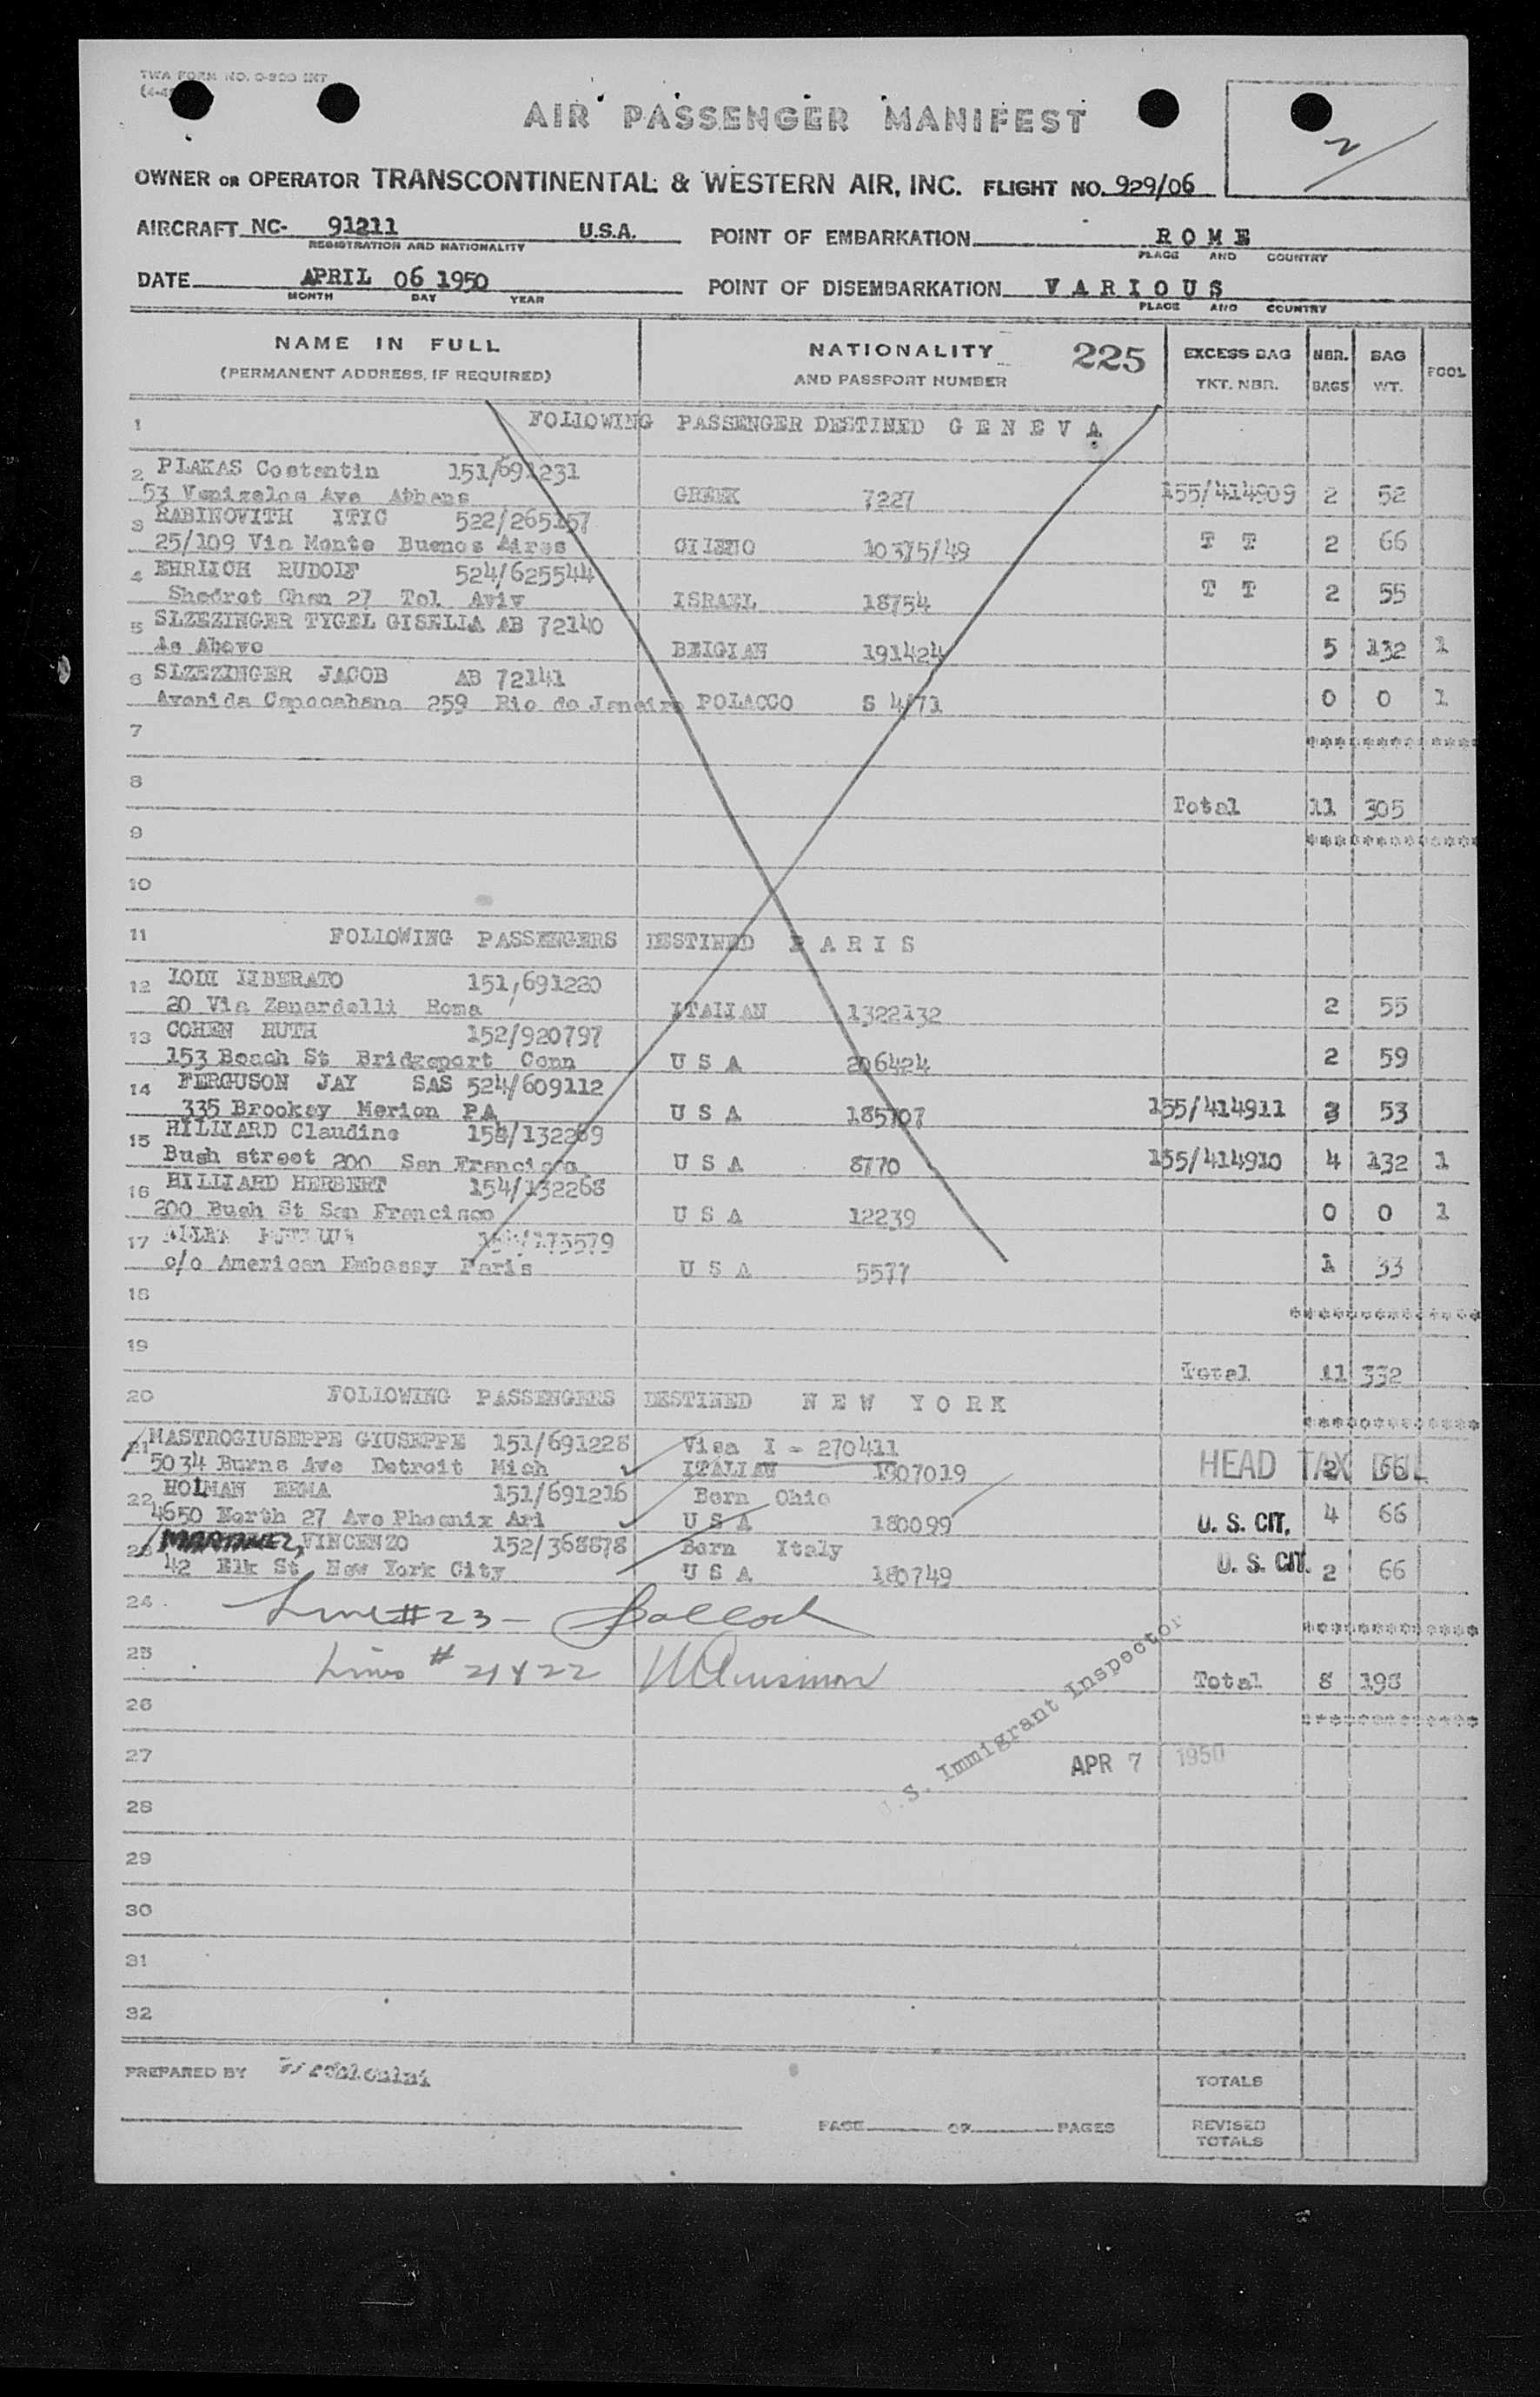 TWA FORM NO. 0-800 INT
AIR PASSENGER MANIFEST
2
OWNER OR OPERATOR TRANSCONTINENTAL & WESTERN AIR, INC. FLIGHT NO. 929/06
AIRCRAFT NC- 91211 U.S.A. POINT OF EMBARKATION R O M E
REGISTRATION AND NATIONALITY PLACE AND COUNTRY
DATE APRIL 06 1950 POINT OF DISEMBARKATION V A R I O U S
MONTH DAY YEAR PLACE AND COUNTRY
NAME IN FULL NATIONALITY 225 EXCESS BAG NBR. BAG POOL
(PERMANENT ADDRESS, IF REQUIRED) AND PASSPORT NUMBER TKT. NBR. BAGS WT.
1 FOLLOWING PASSENGER DESTINED G E N E V A
2 PLAKAS Costantin 151/691231
53 Venizelos Ave Athens GREEK 7227 155/414909 2 52
3 RABINOVITH ITIC 522/265157
25/109 Via Monte Buenos Aires CILENO 10375/49 T T 2 66
4 EHRLICH RUDOLF 524/625544
Shedrot Chen 27 Tel Aviv ISRAEL 18754 T T 2 55
5 SLZEZINGER TYGEL GISELLA AB 72140
As Above BELGIAN 191424 5 132 1
6 SLZEZINGER JACOB AB 72141
Avenida Capocabana 259 Rio de Janeiro POLACCO S 4/71 0 0 1
7 ***********
8
Total 11 305
9 ***********
10
11 FOLLOWING PASSENGERS DESTINED P A R I S
12 LODI LIBERATO 151/691220
20 Via Zanardelli Roma ITALIAN 1322132 2 55
13 COHEN RUTH 152/920797
153 Beach St Bridgeport Conn U S A 206424 2 59
14 FERGUSON JAY SAS 524/609112
335 Brooksy Merion PA U S A 185707 155/414911 3 53
15 HILLIARD Claudine 154/132269
Bush street 200 San Francisco U S A 8770 155/414910 4 132 1
16 HILLIARD HERBERT 154/132268
200 Bush St San Francisco U S A 12239 0 0 1
17
c/o American Embassy Paris U S A 5577 1 33
18 ************
19
Total 11 332
20 FOLLOWING PASSENGERS DESTINED N E W Y O R K
***********
21 MASTROGIUSEPPE GIUSEPPE 151/691228 Visa I - 270411
5034 Burns Ave Detroit Mich ITALIAN 1307019 HEAD TAX 2 66
22 HOLMAN ERMA 151/691216 Born Ohio
4650 North 27 Ave Phoenix Ari U S A 180099 U. S. CIT. 4 66
23 VINCENZO 152/368878 Born Italy
42 Elk St New York City U S A 180749 U. S. CIT. 2 66
24 Line #23 -
***********
25 Lines # 21 & 22
Total 8 198
26 ***********
U.S. Immigrant Inspector
27 APR 7 1950
28
29
30
31
32
PREPARED BY
TOTALS
PAGE OF PAGES REVISED
TOTALS